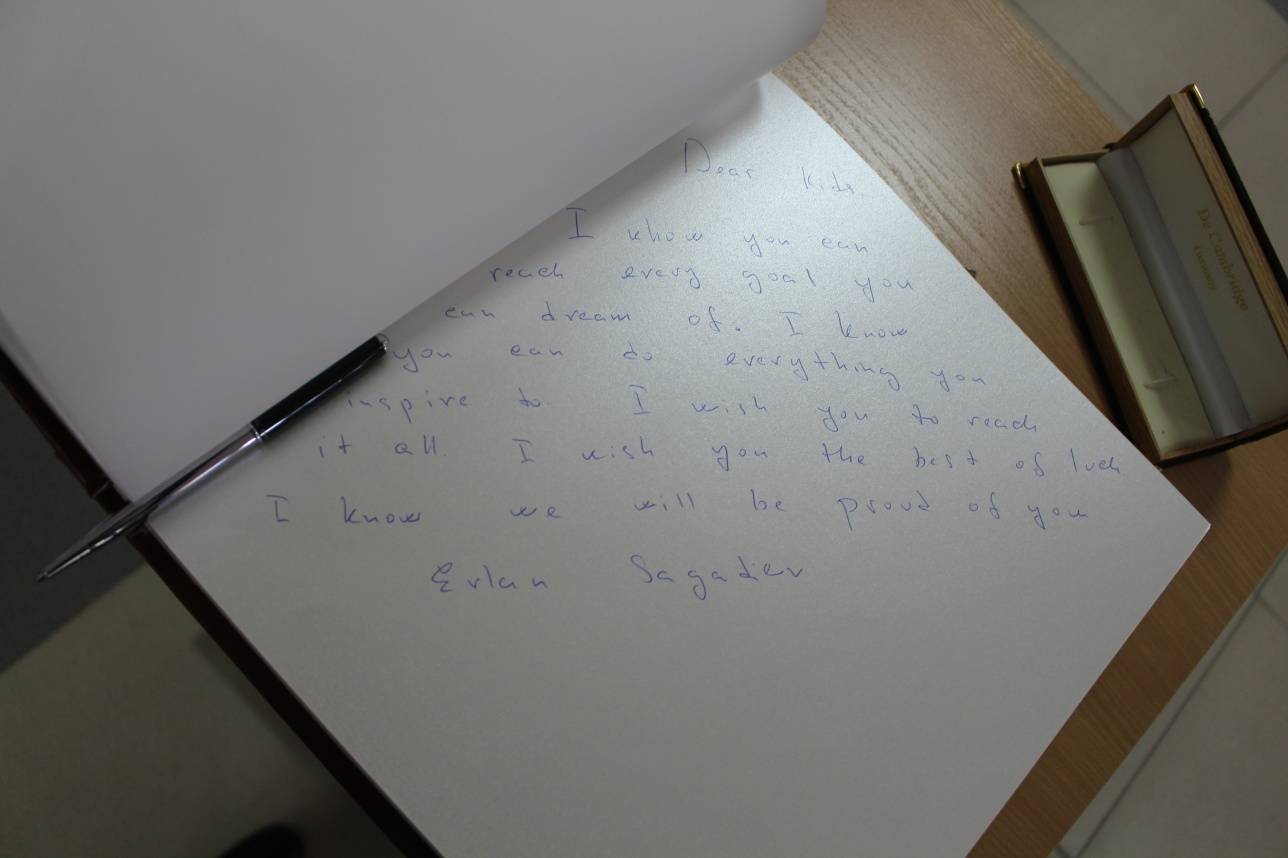 Dear kids.
I know you can
reach every goal you
can dream of. I know
you can do everything you
inspire to. I wish you to reach
it all I wish you the best of luck
I know we will be proud of you
Erlan Sagadiev
De Cambridge